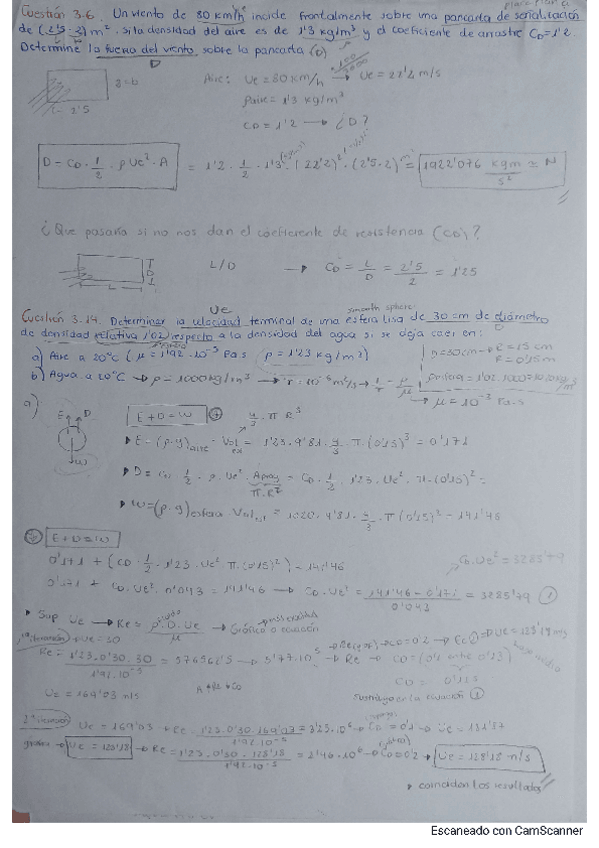 Cuestión 3.6. Un viento de 80 km/h incide frontalmente sobre una pancarta de señalización
de (2'5·2) m². Si la densidad del aire es de 1'3 kg/m³ y el coeficiente de arrastre CD=1'2.
Determine la fuerza del viento sobre la pancarta (D)
D
2=b
2'5
Aire: Ue = 80 km/h → Ue = 22'2 m/s
ρaire = 1'3 kg/m³
CD = 1'2 → ¿D?
D = CD · 1/2 · ρ Ue² · A = 1'2 · 1/2 · 1'3 · (22'2)² · (2'5·2) = 1922'076 kgm/s² ≃ N
¿Que pasaría si no nos dan el coeficiente de resistencia (CD)?
L/D → CD = L/D = 2'5/2 = 1'25
Ue
smooth sphere
Cuestión 3.14. Determinar la velocidad terminal de una esfera lisa de 30 cm de diámetro
de densidad relativa 1'02 respecto a la densidad del agua si se deja caer en:
a) Aire a 20°C (μ = 1'92·10⁻⁵ Pa·s ρ = 1'23 kg/m³)
b) Agua a 20°C → ρ = 1000 kg/m³
→ μ = 10⁻³ Pa·s
a)
E D
W
E + D = W
4/3 · π R³
E = (ρ·g)aire · Vol = 1'23 · 9'81 · 4/3 · π (0'15)³ = 0'171
D = CD · 1/2 · ρ · Ue² · Aproy = CD · 1/2 · 1'23 · Ue² · π · (0'15)² =
π·R²
W = (ρ·g)esfera Vol = 1020 · 9'81 · 4/3 · π (0'15)³ = 141'46
E + D = W
0'171 + (CD · 1/2 · 1'23 · Ue² π (0'15)²) = 141'46
CD·Ue² = 3285'79
0'171 + CD · Ue² · 0'043 = 141'46 → CD · Ue² = 141'46 - 0'171 / 0'043 = 3285'79 ①
Sup Ue → Re = ρ·D·Ue / μ → Gráfico o ecuación
1ª iteración → Ue = 30
Re = 1'23·0'30·30 / 1'92·10⁻⁵ = 576562'5 → 5'77·10⁵ → Re → CD = (0'1 entre 0'13)
CD = 0'115
Ue = 169'03 m/s
sustituyo en la ecuación ①
2ª iteración Ue = 169'03 → Re = 1'23·0'30·169'03 / 1'92·10⁻⁵ = 3'25·10⁶
Ue = 128'18 → Re = 1'23·0'30·128'18 / 1'92·10⁻⁵ = 2'46·10⁶ → CD = 0'2 → Ue = 128'18 m/s
coinciden los resultados
Escaneado con CamScanner